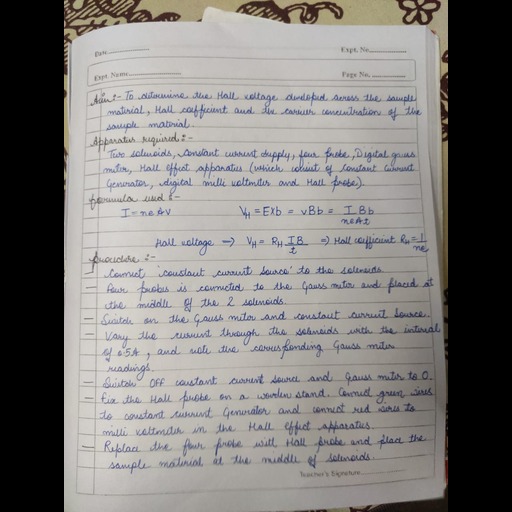 Date
Expt. No.
Expt. Name
Page No.
Aim :- To determine the Hall voltage developed across the sample
material, Hall coefficient and the carrier concentration of the
sample material.
Apparatus required :-
Two solenoids, Constant current supply, four probe, Digital gauss
meter, Hall effect apparatus (which consist of Constant Current
Generator, digital milli voltmeter and Hall probe).
Formula used :-
I = neAV
V_H = Exb = vBb = IBb/neAt
Hall voltage → V_H = R_H IB/t ⇒ Hall coefficient R_H = 1/ne
Procedure :-
Connect 'constant current source' to the solenoids.
Four probes is connected to the Gauss meter and placed at
the middle of the 2 solenoids.
— Switch on the Gauss meter and constant current source.
— Vary the current through the solenoids with the interval
of 0.5A, and note the corresponding Gauss meter
readings.
— Switch OFF constant current source and Gauss meter to 0.
— Fix the Hall probe on a wooden stand. Connect green wires
to constant current Generator and connect red wires to
milli voltmeter in the Hall Effect apparatus.
— Replace the four probe with Hall probe and place the
sample material at the middle of solenoids.
Teacher's Signature